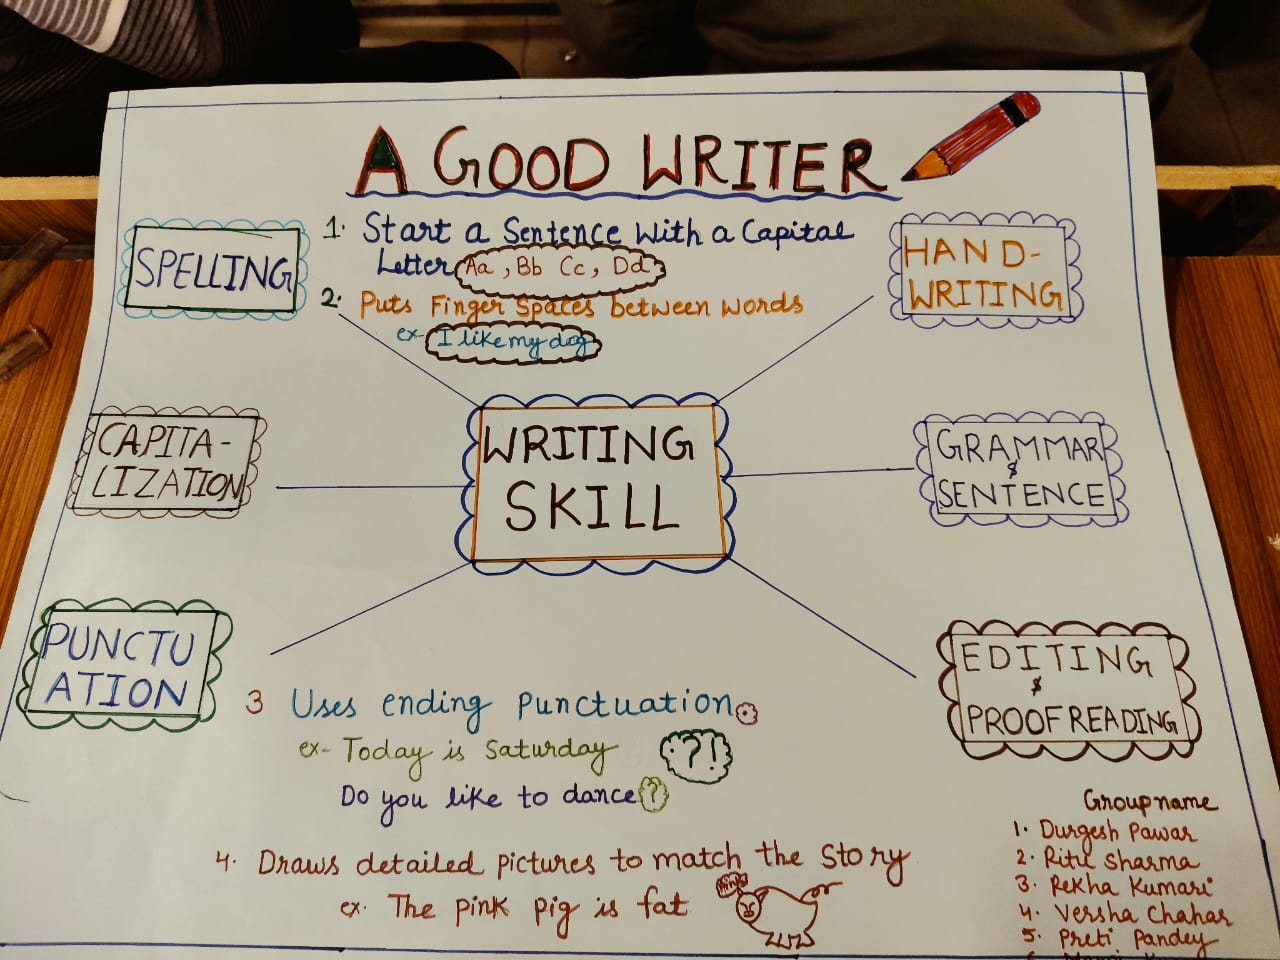 A GOOD WRITER
SPELLING
1. Start a Sentence With a Capital
Letter Aa , Bb Cc, Dd
2. Puts Finger Spaces between words
ex- I like my dog
HAND-
WRITING
CAPITA-
LIZATION
WRITING
SKILL
GRAMMAR
&
SENTENCE
PUNCTU
ATION
EDITING
&
PROOFREADING
3 Uses ending Punctuation.
ex- Today is Saturday . ? !
Do you like to dance ?
4. Draws detailed pictures to match the Story
ex. The pink pig is fat
Groupname
1. Durgesh Pawar
2. Ritu Sharma
3. Rekha Kumari
4. Versha Chahar
5. Preti Pandey